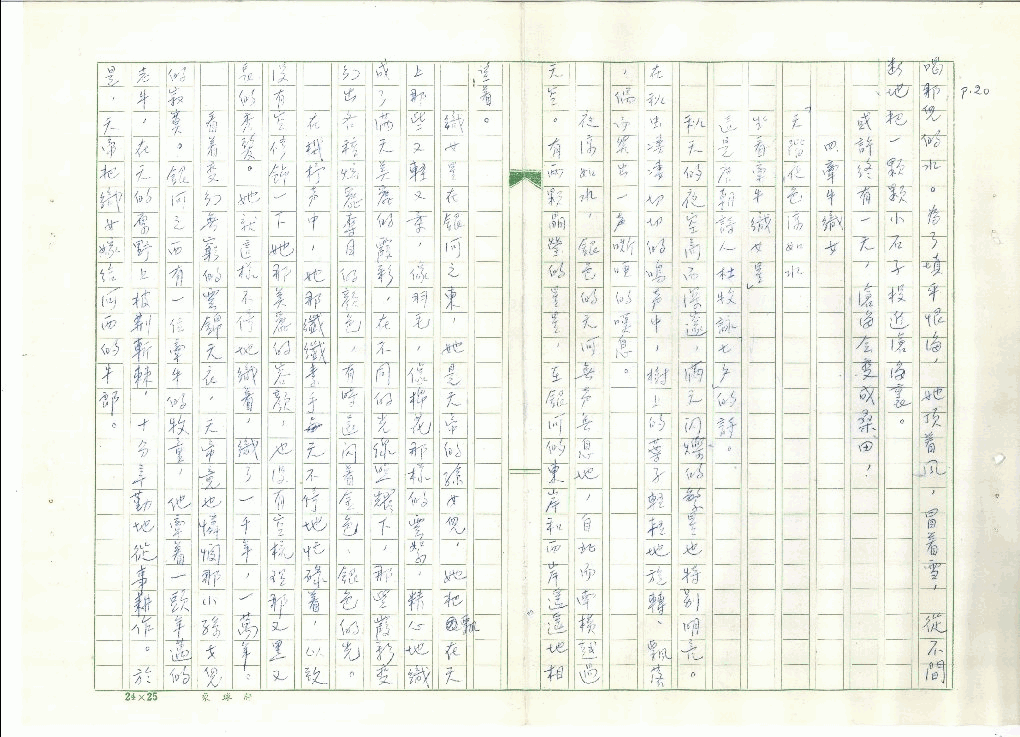 P.20
喝那兒的水。為了填平恨海，她頂着風，冒着雪，從不間
斷地把一顆顆小石子投進滄海裏。
或許終有一天，滄海会变成桑田！
四、牽牛織女
「天階夜色涼如水
坐看牽牛織女星」
這是唐朝詩人杜牧詠七夕的詩。
秋天的夜空高而深遠，滿天閃爍的繁星也特别明亮。
在秋虫凄凄切切的鳴声中，樹上的葉子輕輕地旋轉、飄落
，偶而突出一声嘶啞的嘆息。
夜涼如水，銀色的天河無声無息地，自北而南橫越過
天空。有兩顆晶瑩的星星，在銀河的東岸和西岸遙遙地相
望着。
織女星在銀河之東，她是天帝的孫女兒，她把飄在天
上那些又輕又柔，像羽毛，像棉花那樣的雲絮，精心地織
成了滿天美麗的霞彩，在不同的光線照耀下，那些霞彩变
幻出各種炫麗奪目的顏色，有時還闪着金色、銀色的光。
在機杼声中，她那纖纖素手每天不停地忙碌着，以致
沒有空修飾一下她那美麗的容顏，也沒有空梳理那又黑又
長的秀髮。她就這樣不停地織着，織了一千年，一萬年。
看着变幻無窮的雲錦天衣，天帝竟也憐憫那小孫女兒
的寂寞。銀河之西有一位牽牛的牧童，他牽着一頭年邁的
老牛，在天的曠野上披荆斬棘，十分辛勤地從事耕作。於
是，天帝把織女嫁给河西的牛郎。
24×25